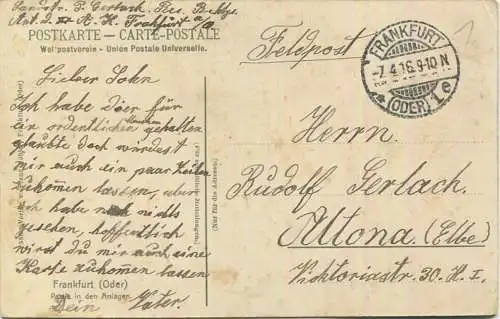 Landstr. P. Gerlach. Res.
Abt. 2 R. K. Frankfurt a/O
POSTKARTE — CARTE-POSTALE
Weltpostverein - Union Postale Universelle.
Lieber Sohn
Ich habe Dier für
ein ordentlichen gehalten
glaubte doch würdest
mir auch ein paar Zeilen
zukomen lassen, aber
ich habe noch nichts
gesehen, hoffentlich
wirst du mir auch eine
Karte zukomen lassen
Frankfurt (Oder)
Partie in den Anlagen
Dein Vater.
(Nur für die Adresse)
Feldpost
FRANKFURT
-7.4.16.9-10 N
* (ODER) 1 e
Herrn
Rudolf Gerlach.
Altona. (Elbe)
Vicktoriastr. 30. H. I.